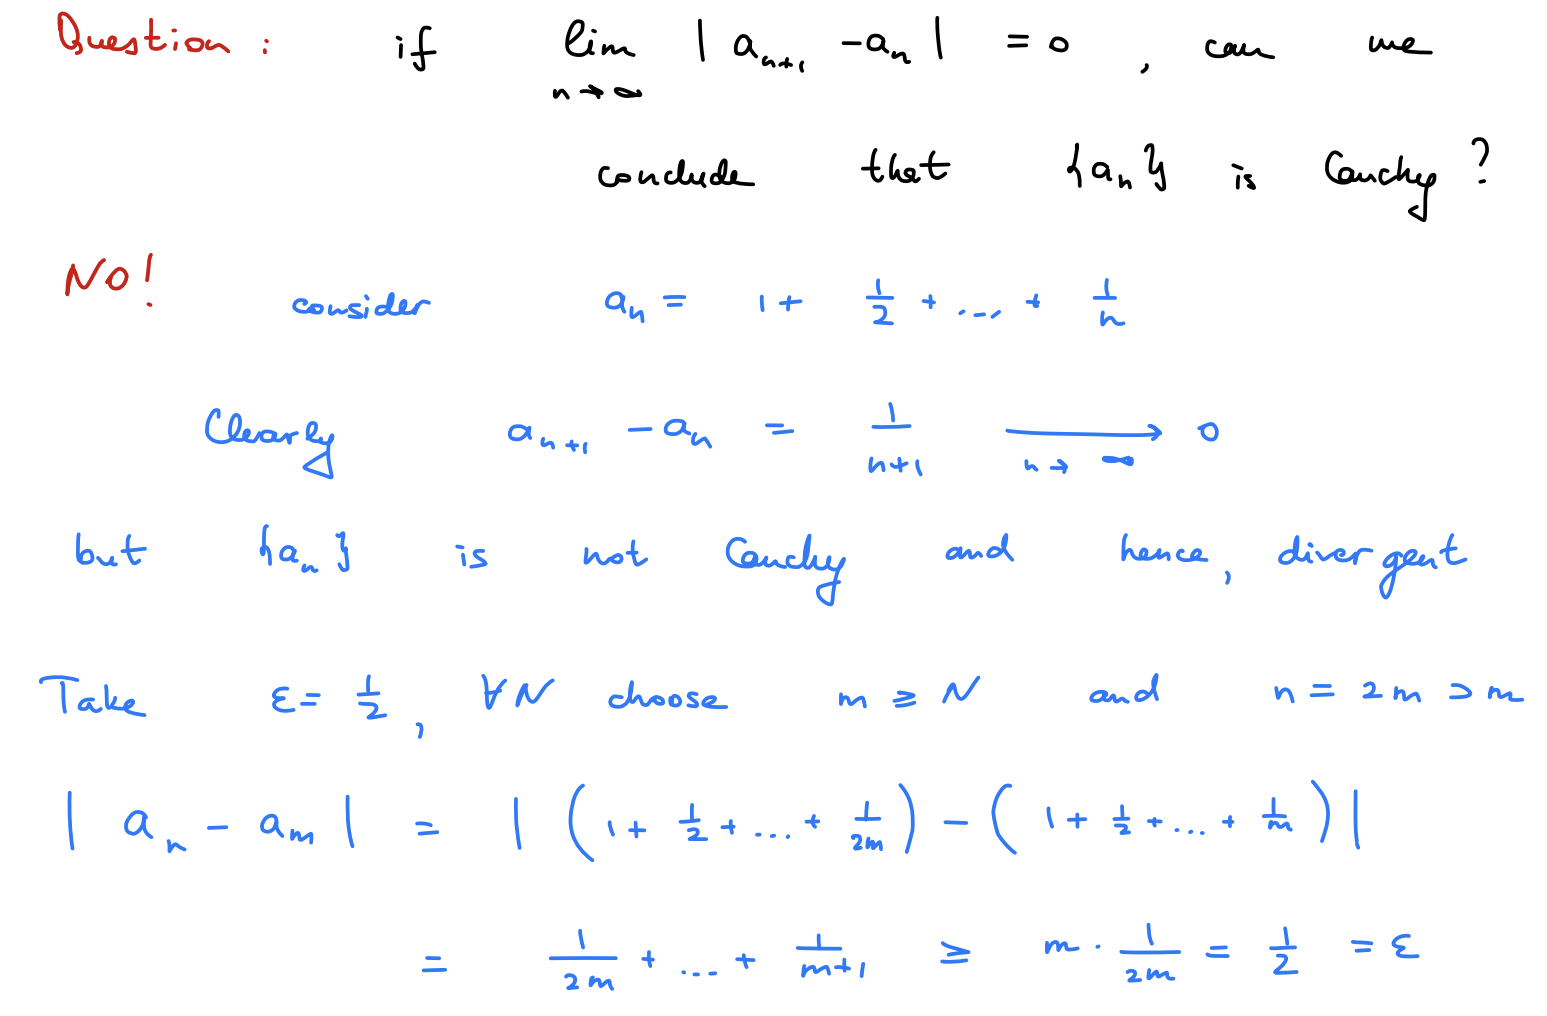 Question : if lim n→∞ | aₙ₊₁ - aₙ | = 0 , can we
conclude that {aₙ} is Cauchy ?
NO! consider aₙ = 1 + 1/2 + ... + 1/n
Clearly aₙ₊₁ - aₙ = 1/(n+1) ⟶ n→∞ 0
but {aₙ} is not Cauchy and hence, divergent
Take ε = 1/2 , ∀N choose m ≥ N and n = 2m > m
| aₙ - aₘ | = | (1 + 1/2 + ... + 1/2m) - (1 + 1/2 + ... + 1/m) |
= 1/2m + ... + 1/(m+1) ≥ m · 1/2m = 1/2 = ε